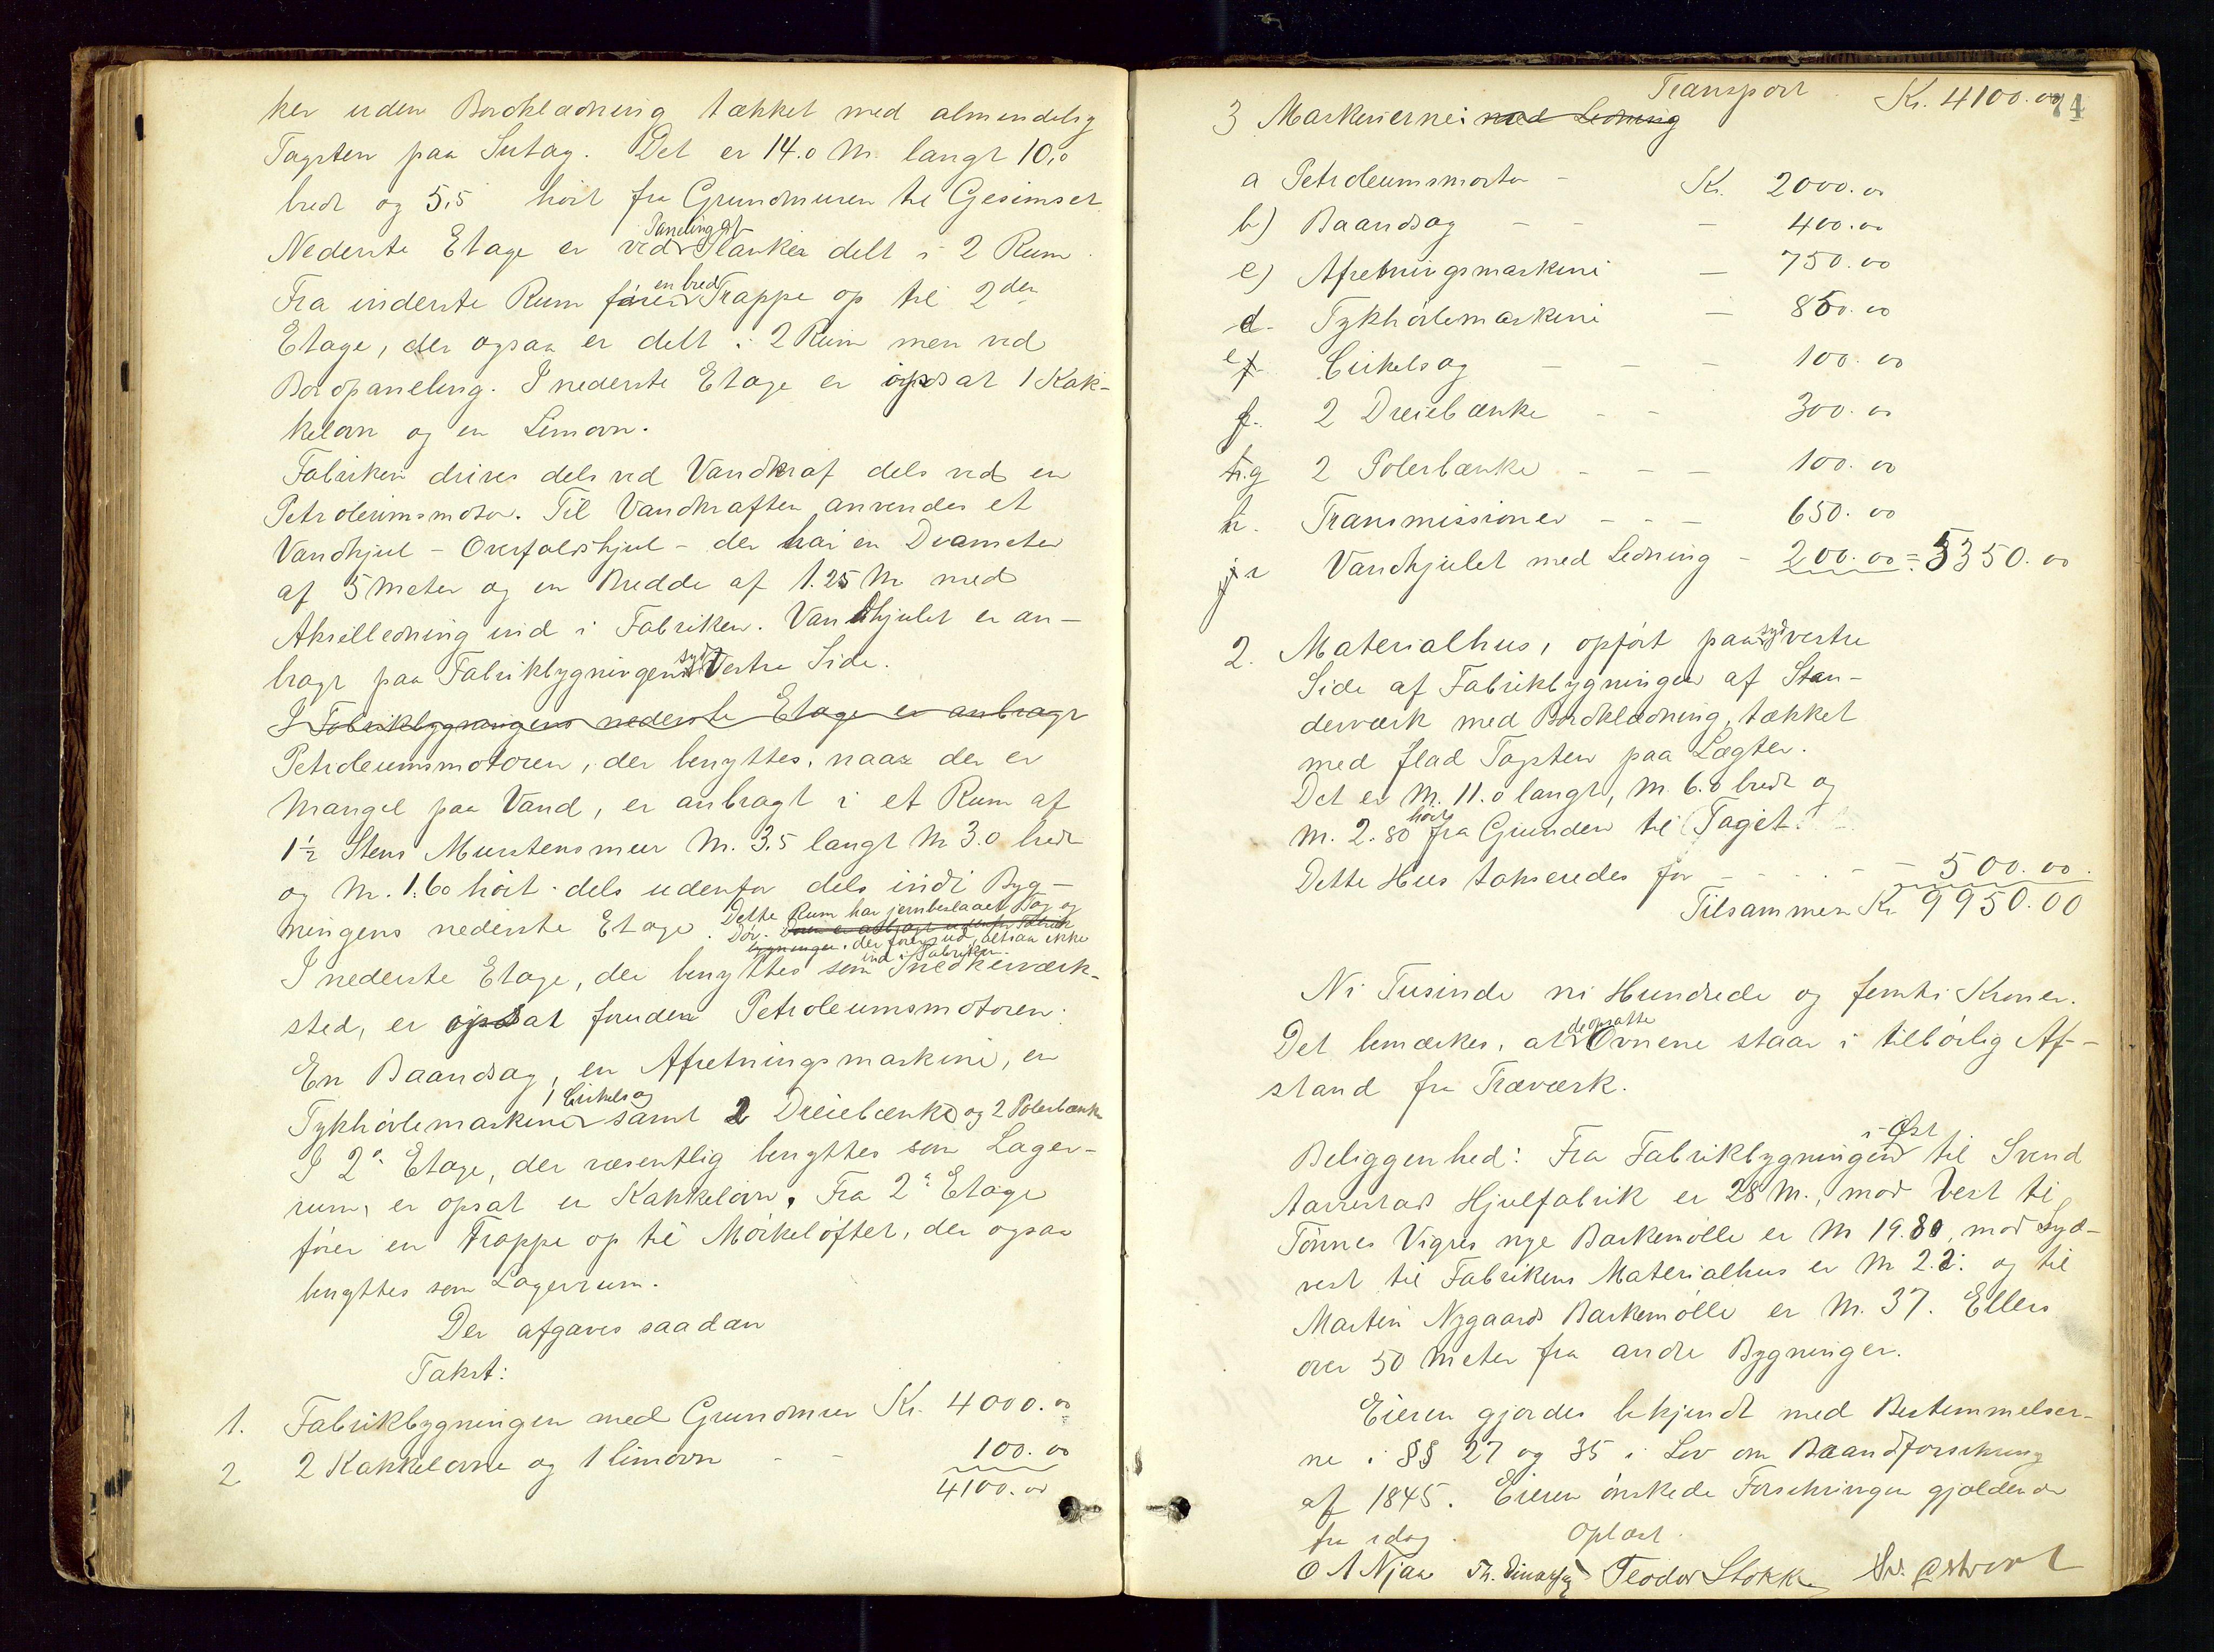 ker uden Bordklædning tækket med almindelig
Tagsten paa Sutag. Det er 14.0 M. langt 10,0
bredt og 5,5 høit fra Grundmuren til Gesimset.
Nederste Etage er ved Paneling af Planker delt i 2 Rum.
Fra inderste Rum fører en bred Trappe op til 2den
Etage, der ogsaa er delt i 2 Rum men ved
Bordpaneling. I nederste Etage er opsat 1 Kak-
kelovn og en Limovn.
Fabriken drives dels ved Vandkraf dels ved en
Petroleumsmotor. Til Vandkraften anvendes et
Vandhjul - Overfaldshjul - der har en Diameter
af 5 Meter og en Bredde af 1.25 M med
Akselledning ind i Fabriken. Vandhjulet er an-
bragt paa Fabrikbygningens syd Vestre Side.
I Fabrikbygningens nederste Etage er anbragt
Petroleumsmotoren, der benyttes, naar der er
Mangel paa Vand, er anbragt i et Rum af
1½ Stens Murstensmur M. 3,5 langt M 3.0 bredt
og M. 1.60 høit dels udenfor dels indi Byg-
ningens nederste Etage. Dette Rum har jernbeslaaet Tag og
Dør. der fører ud, altsaa ikke
ind i Fabriken.
I nederste Etage, der benyttes som Snedkerværk-
sted, er opsat foruden Petroleumsmotoren:
En Baandsag, en Afretningsmaskine, en
Tykhøvlemaskine 1 Cirkelsag samt 2 Dreiebænke og 2 Polerbænke
I 2. Etage, der væsentlig benyttes som Lager-
rum, er opsat en Kakkelovn. Fra 2. Etage
fører en Trappe op til Mørkeloftet, der ogsaa
benyttes som Lagerrum.
Der afgaves saadan
Takst:
1. Fabrikbygningen med Grundmur Kr. 4000.00
2 2 Kakkelovne og 1 Limovn - - 100.00
4100.00
74
Transport Kr. 4100.00
3 Maskinerne: med Ledning
a Petroleumsmotor - Kr. 2000.00
b) Baandsag - - - 400.00
c) Afretningsmaskine - 750.00
d - Tykhøvlemaskine - 850.00
e Cirkelsag - - - 100.00
f. 2 Dreiebænke - - 300.00
g 2 Polerbænke - - - 100.00
h. Transmissioner - - - 650.00
i Vandhjulet med Ledning - 200.00 = 5350.00
2. Materialhus, opført paa syd vestre
Side af Fabrikbygningen af Stan-
derværk med Bordklædning, tækket
med flad Tagsten paa Lægter.
Det er M. 11.0 langt, M. 6.0 bredt og
M. 2.80 høit fra Grunden til Taget.
Dette Hus takseredes for - - - - 500.00.
Tilsammen Kr 9950.00
Ni Tusinde ni Hundrede og femti Kroner.
Det bemærkes, at de opsatte Ovnene staar i tilbørlig Af-
stand fra Træværk.
Beliggenhed: Fra Fabrikbygningen i Øst til Svend
Aarrestads Hjulfabrik er 28 M., mod Vest til
Tønnes Vigres nye Barkemølle er M 19.80, mod Syd-
vest til Fabrikens Materialhus er M 2.2. og til
Martin Nygaards Barkemølle er M. 37. Ellers
over 50 Meter fra andre Bygninger.
Eieren gjordes bekjendt med Bestemmelser-
ne i §§ 27 og 35 i Lov om Brandforsikring
af 1845. Eieren ønskede Forsikringen gjældende
fra idag. Oplæst.
O A Njaa Teodor Stokke